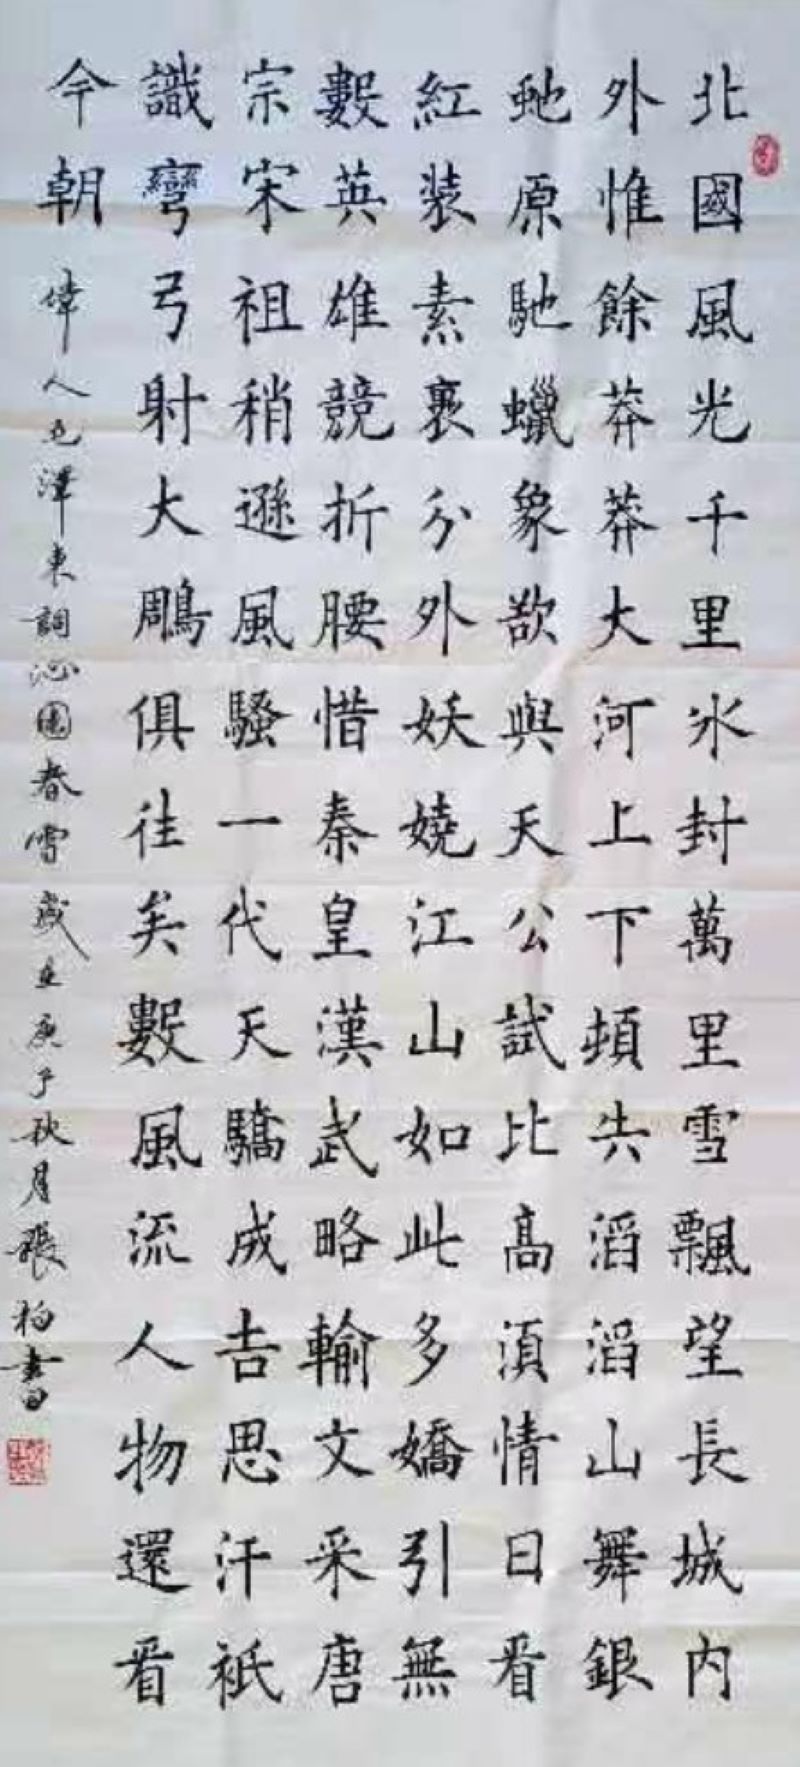 北國風光千里冰封萬里雪飄望長城內
外惟餘莽莽大河上下頓失滔滔山舞銀
虵原馳蠟象欲與天公試比高須情日看
紅裝素裹分外妖嬈江山如此多嬌引無
數英雄競折腰惜秦皇漢武略輸文采唐
宗宋祖稍遜風騷一代天驕成吉思汗祇
識彎弓射大鵰俱往矣數風流人物還看
今朝
偉人毛澤東詞沁園春雪歲在庚子秋月張柏書